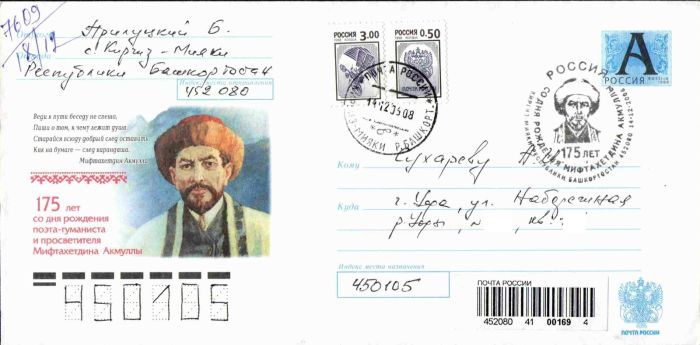 7609
8/19
Прилуцкий Б.
с. Киргиз-Мияки
Республики Башкортостан
Индекс места отправления
452 080
Веди к пути беседу не спеша,
Пиши о том, к чему лежит душа.
Старайся всюду добрый след оставить,
Как на бумаге — след карандаша.
Мифтахетдин Акмулла
175 лет
со дня рождения
поэта-гуманиста
и просветителя
Мифтахетдина Акмуллы
450105
РОССИЯ
3.00
РОССИЯ
0.50
ПОЧТА РОССИИ
14 12 06 08
МИЯКИ Р.БАШКОРТ
А
РОССИЯ
РОССИЯ
СО ДНЯ РОЖДЕНИЯ МИФТАХЕТДИНА АКМУЛЛЫ
175 ЛЕТ
КИРГИЗ-МИЯКИ РЕСПУБЛИКИ БАШКОРТОСТАН 452080 14-12-2006
Кому
Сухареву
Куда
г. Уфа, ул. Набережная
р. Уфы,
кв.
Индекс места назначения
450105
ПОЧТА РОССИИ
452080 41 00169 4
ПОЧТА РОССИИ